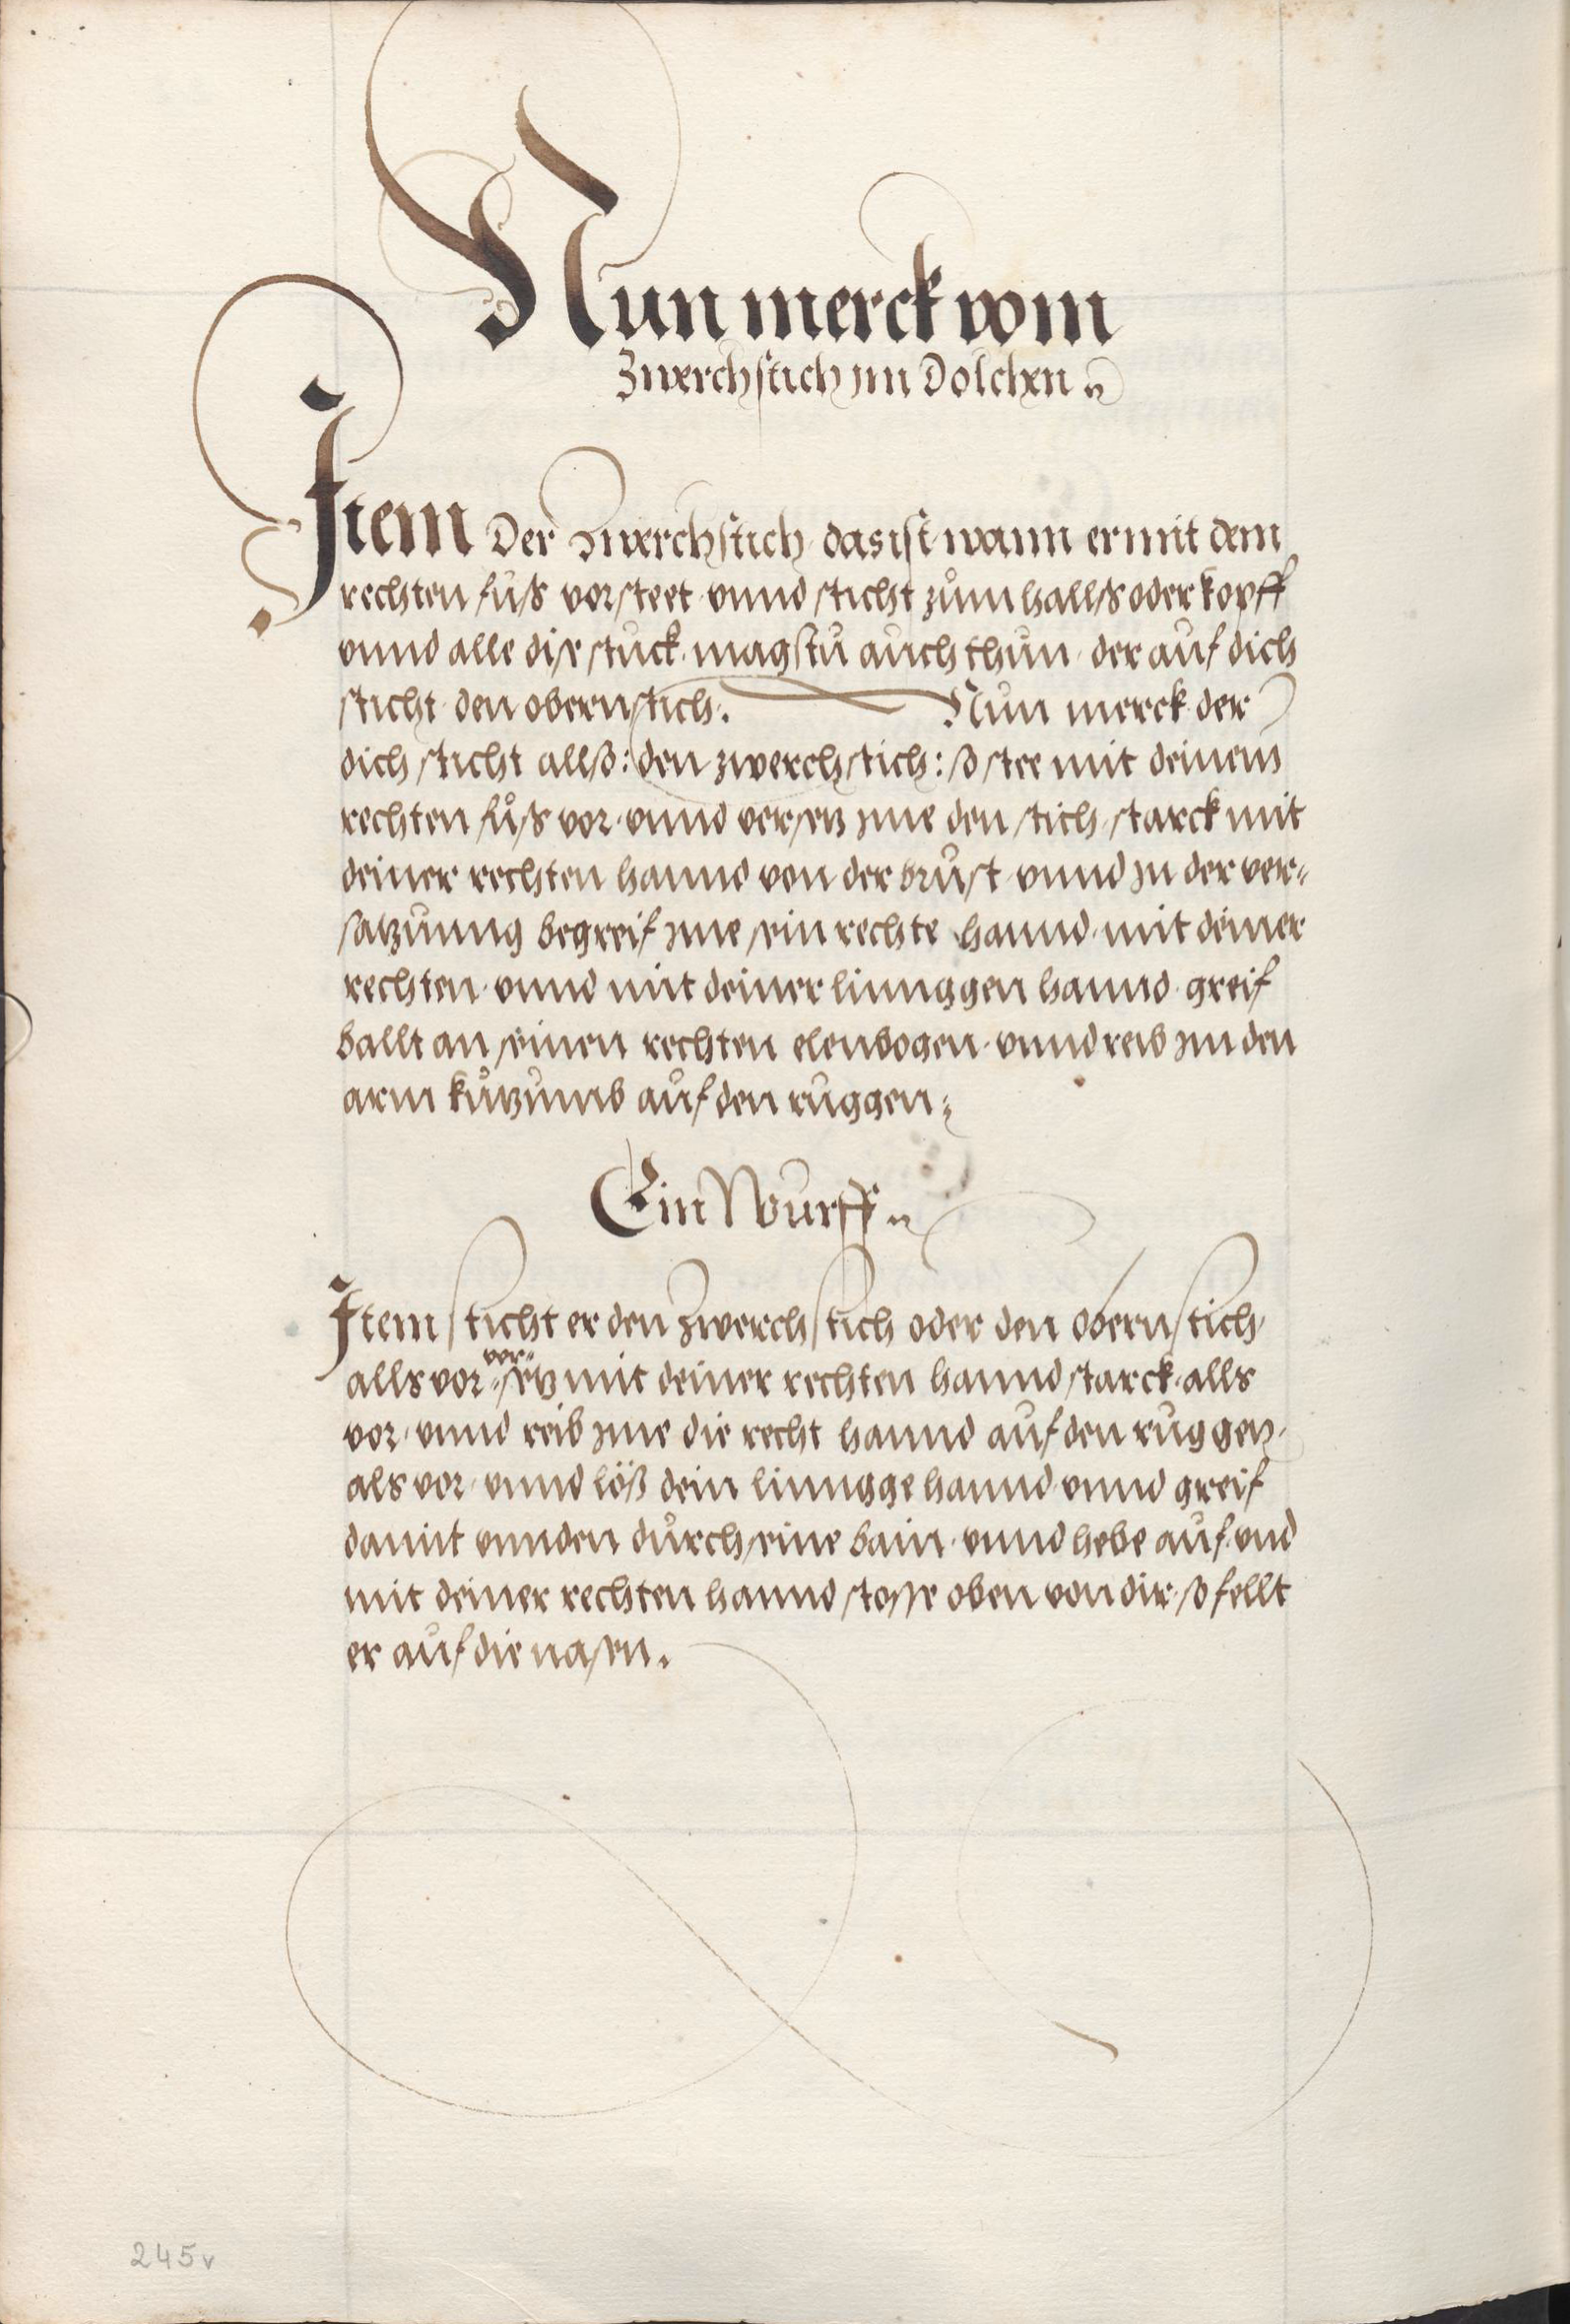 Nun merck vom
Zwerchstich im Dolchen
Item Der zwerchstich, das ist, wann er mit dem
rechten fůß vorsteet, unnd sticht zům hallß oder kopff
unnd alle dise stuck, magstu auch thun, der auf dich
sticht, den obern stich. Nun merck, der
dich sticht allso: den zwerchstich: so stee mit deinem
rechten fůß vor, unnd versetz ime den stich, starck mit
deiner rechten hannd von der brust, unnd in der ver=
satzunng begreif ime sein rechte hannd, mit deiner
rechten, unnd mit deiner linnggen hannd, greif
ballt an seinen rechten elenbogen, unnd reib im den
arm umb auf den ruggen
Ein Wurff
Item sticht er den zwerchstich oder den obern stich,
alls vor, versetz mit deiner rechten hannd starck, alls
vor, unnd reib ime die recht hannd auf den ruggen,
als vor, unnd löß dein linngge hannd, unnd greif
damit unnden durch seine bain, unnd hebe auf, und
mit deiner rechten hannd stosse oben von dir, so fellt
er auf die nasen.
245v